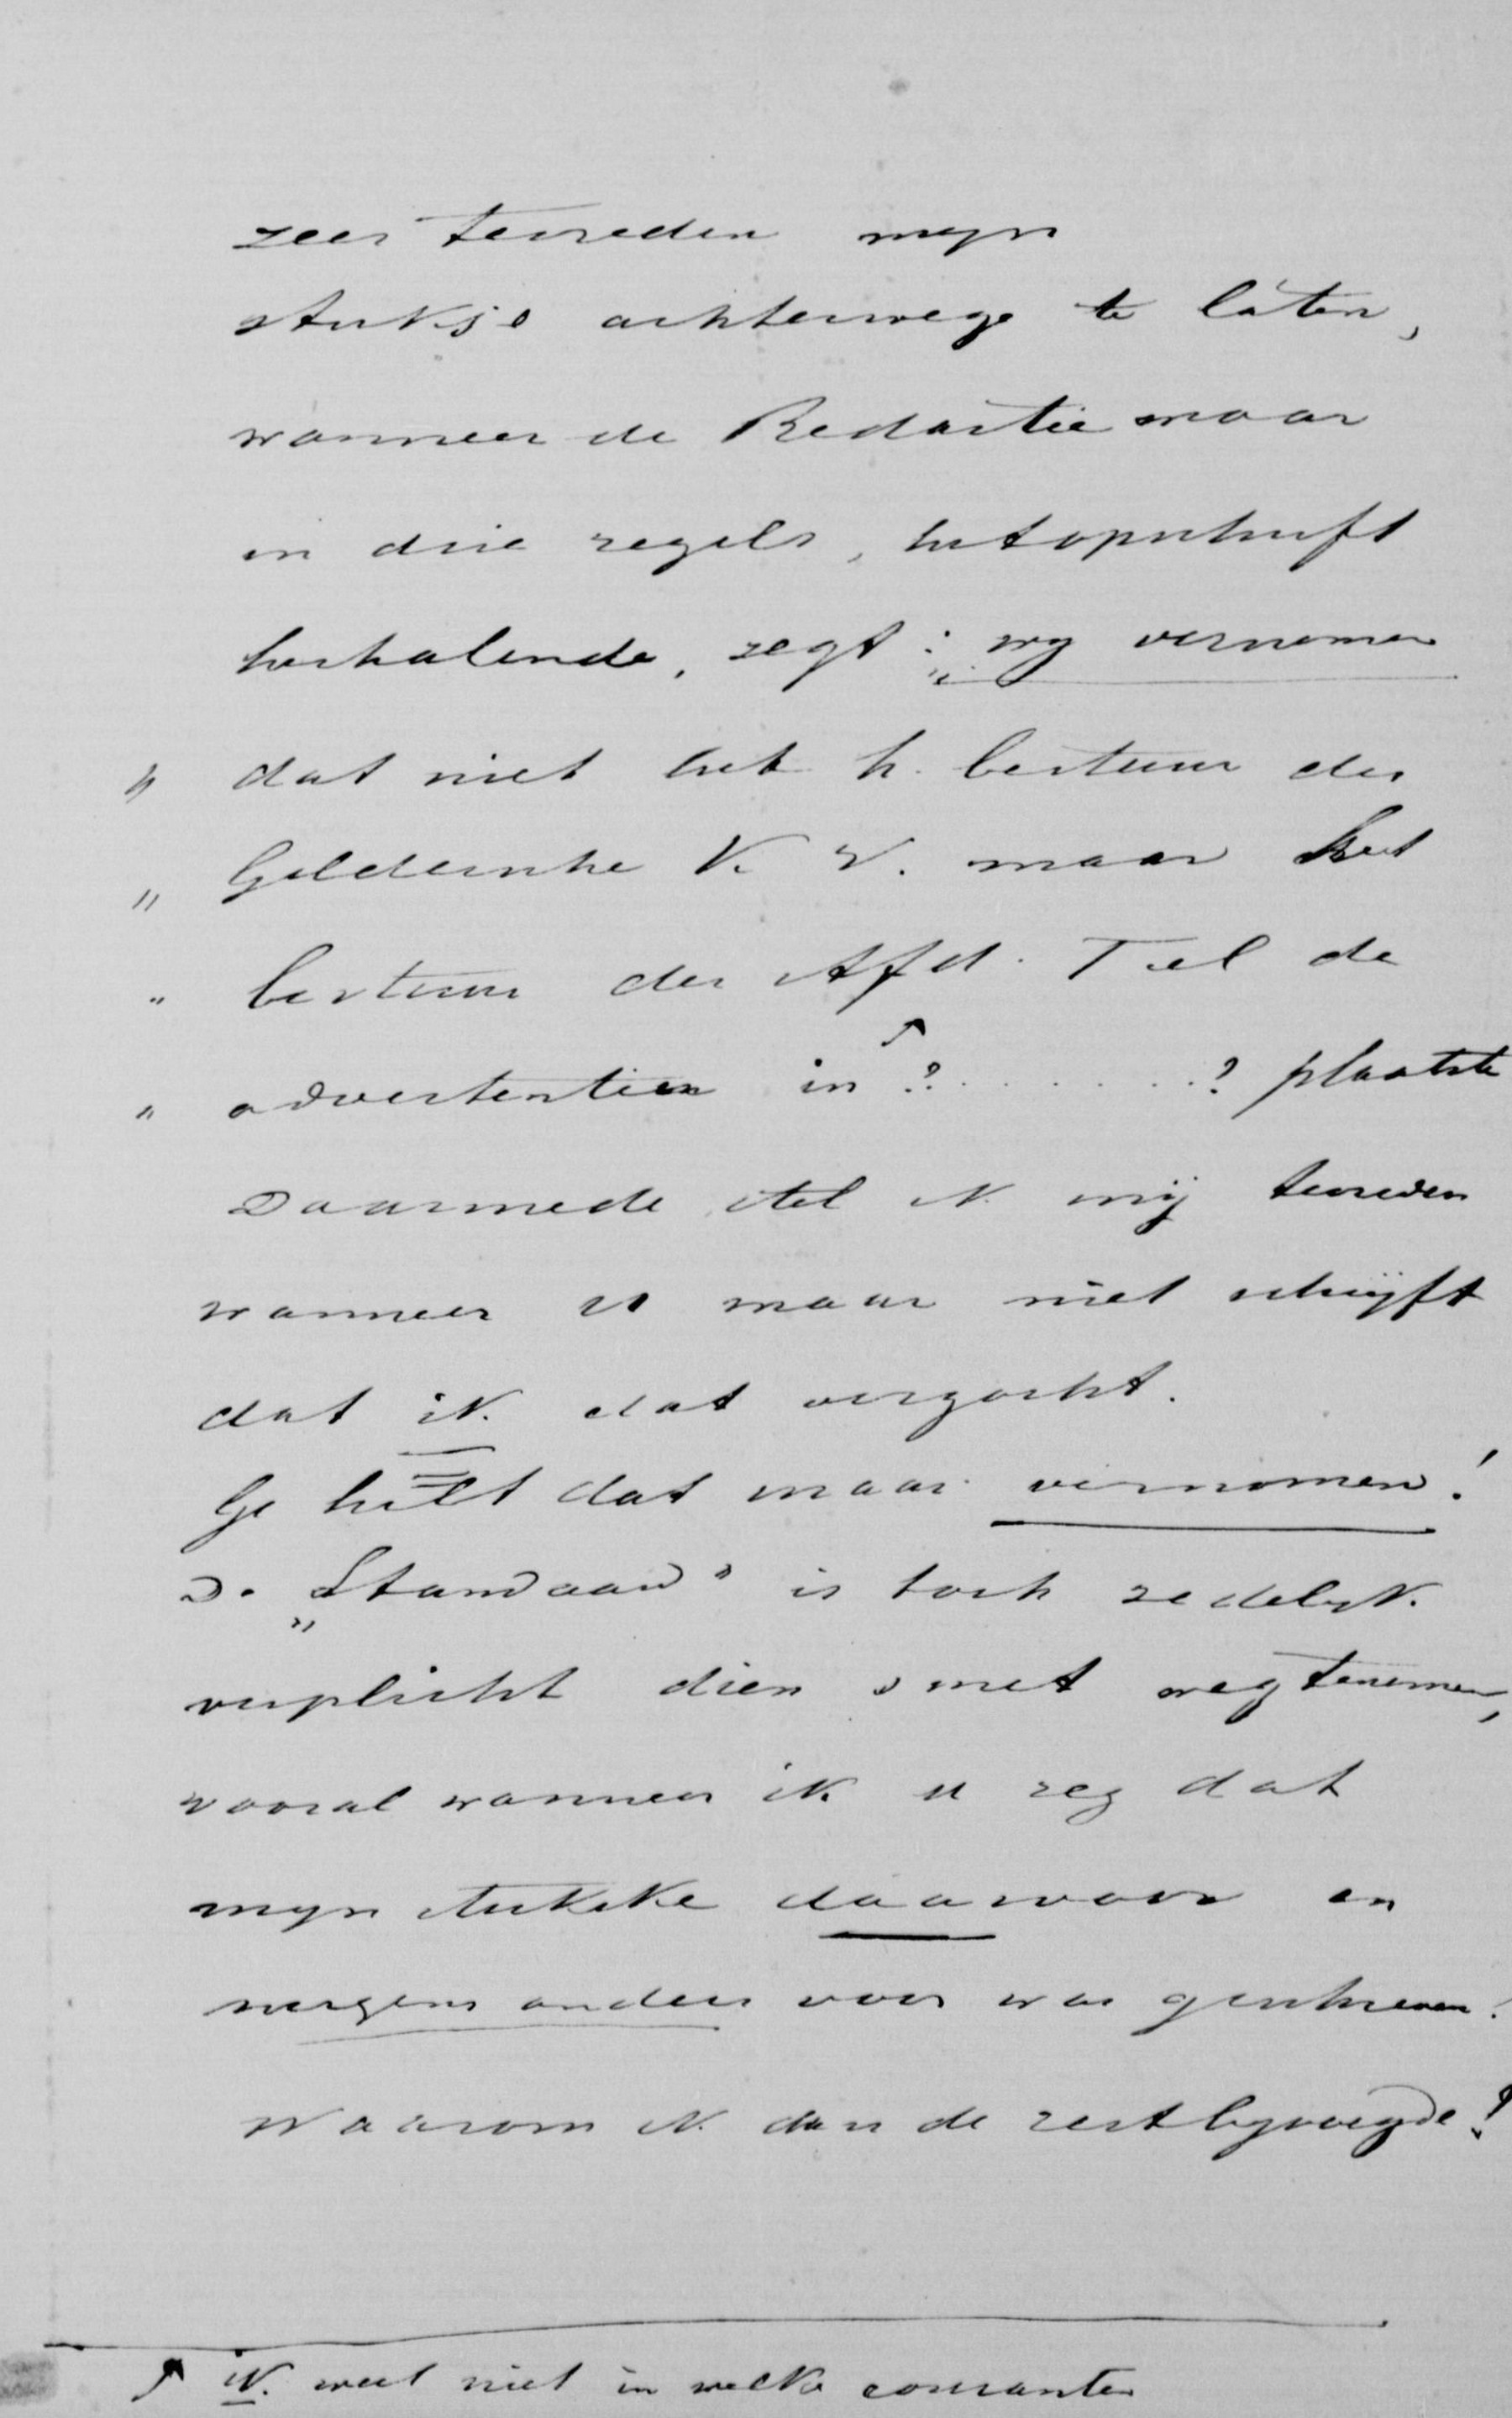 zeer tevreden mijn
stukje achterwege te laten,
wanneer de Redactie maar
in drie regels, het opschrift
herhalende, zegt: „wij vernemen
„ dat niet het h. bestuur der
„ Geldersche K. V. maar het
„ bestuur der Afd. Tiel de
„ advertentien in ?........? plaatste
Daarmede stel ik mij tevreden
wanneer u maar niet schrijft
dat ik dat verzocht.
Ge hebt dat maar vernomen!
De „Standaard" is toch zedelijk
verplicht dien smet weg te nemen,
vooral wanneer ik u zeg dat
mijn stukske daarvoor en
nergens anders voor was geschreven!
Waarom ik dan de rest bijvoegde?
ik weet niet in welke couranten